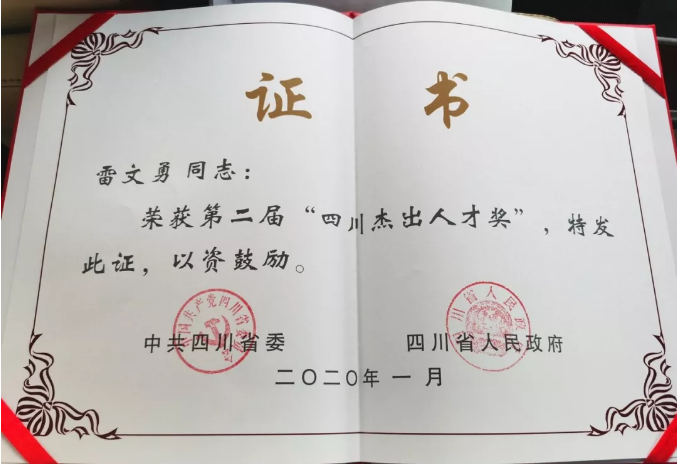 证书
雷文勇同志：
荣获第二届“四川杰出人才奖”，特发
此证，以资鼓励。
中国共产党四川省委
川省人民政
中共四川省委 四川省人民政府
二〇二〇年一月